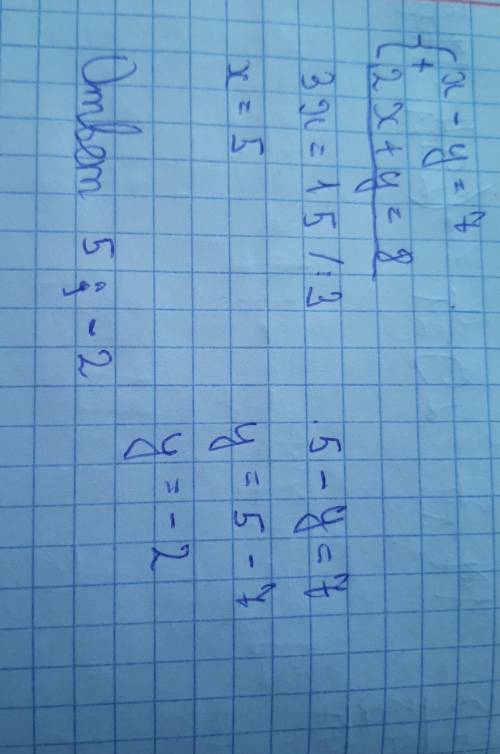 x - y = 7
+
2x + y = 8
3x = 15 /:3
x = 5
5 - y = 7
y = 5 - 7
y = -2
Ответ 5; -2